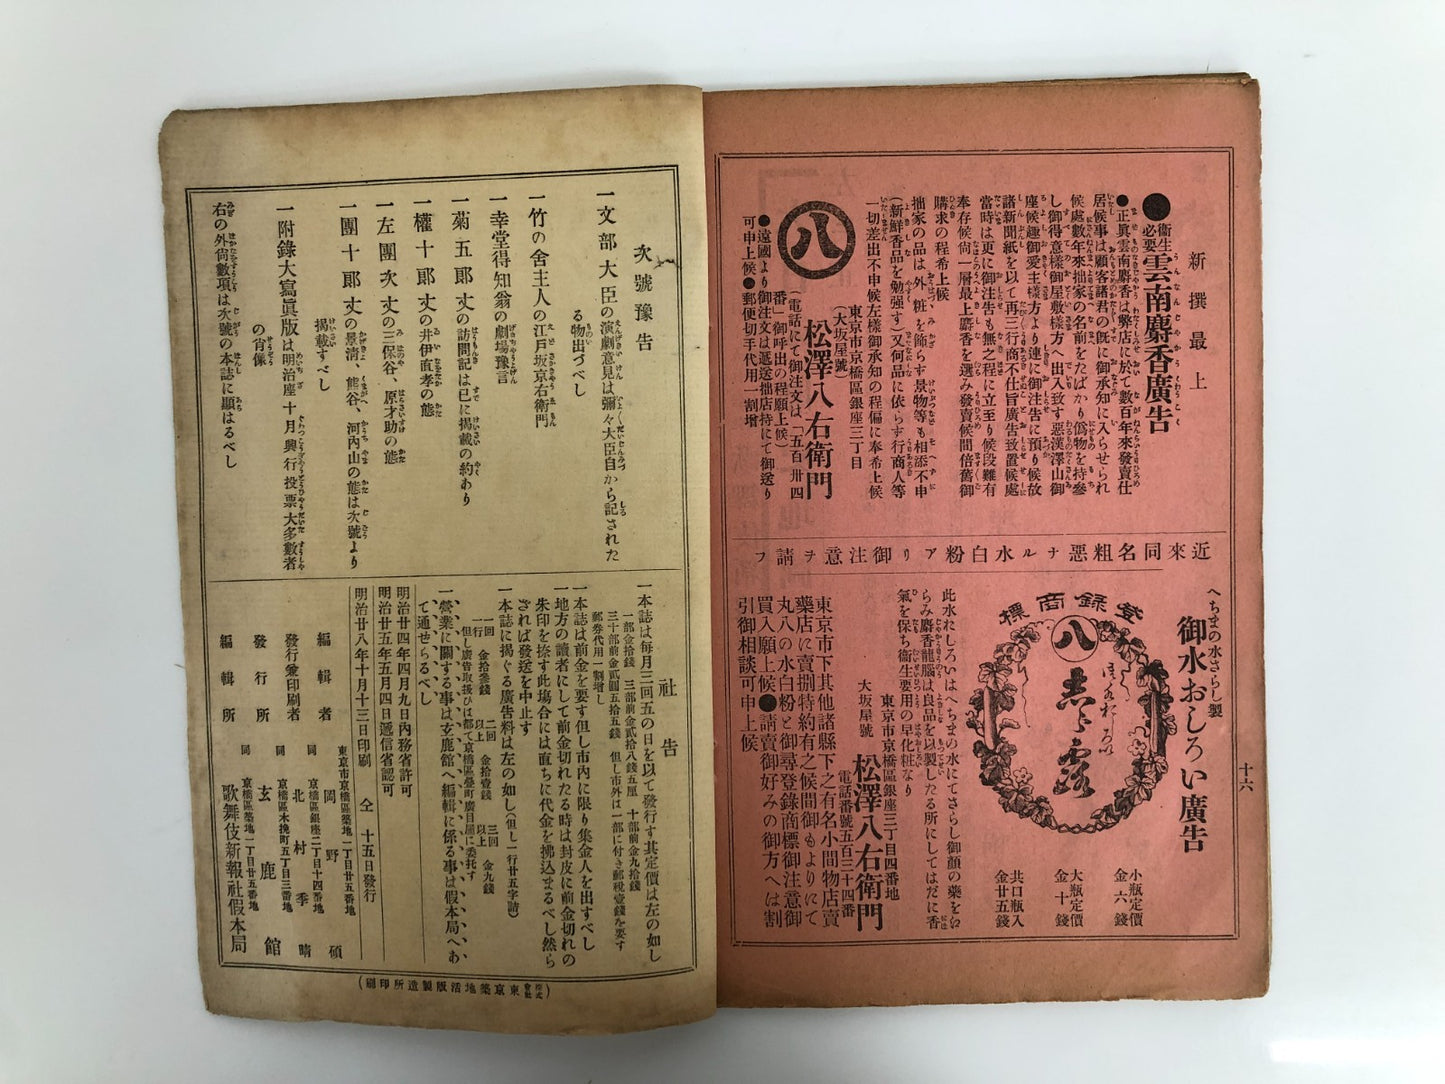 新撰最上
●衞生必要雲南麝香廣告
●正眞雲南麝香は弊店に於て數百年來發賣仕
居候事は顧客諸君の旣に御承知に入らせられ
候處數年來拙家の名前をたばかり僞物を持參
し御得意樣御屋敷樣方へ出入致す惡漢澤山御
座候趣御愛主樣方より連に御注告に預り候故
諸新聞紙を以て再三行商不仕旨廣告致置候處
當時は更に御注告も無之程に立至り候段難有
奉存候尙一層最上麝香を選み發賣候間倍舊御
購求の程希上候
拙家の品は外粧を飾らす景物等も相添不申
(新鮮香品を勉强す)又何品に依らす行商人等
一切差出不申候左樣御承知の程偏に奉希上候
東京市京橋區銀座三丁目
(大坂屋號)
八
松澤八右衞門
(電話にて御注文は「五百卅四
番」御呼出の程願上候)
●遠國より御注文は遞送拙店持にて御送り
可申上候●郵便切手代用一割增
近來同名粗惡ナル水白粉アリ御注意ヲ請フ
十六
へちまの水さらし製
御水おしろい廣告
小瓶定價
金六錢
大瓶定價
金十錢
共口瓶入
金廿五錢
登錄商標
八
此水にしろいはへちまの水にてさらし御顏の藥をは
らみ麝香龍腦は良品を以製したる所にしてはだに香
氣を保ち衞生要用の早化粧なり
東京市京橋區銀座三丁目四番地
電話番號五百三十四番
大坂屋號
松澤八右衞門
東京市下其他諸縣下之有名小間物店賣
藥店に賣捌特約有之候間御もよりにて
丸八の水白粉と御尋登錄商標御注意御
買入願上候●請賣御好みの御方へは割
引御相談可申上候
次號豫吿
一文部大臣の演劇意見は彌々大臣自から記された
る物出づべし
一竹の舍主人の江戸坂京右衞門
一幸堂得知翁の劇場豫言
一菊五郞丈の訪問記は已に揭載の約あり
一權十郞丈の井伊直孝の態
一左團次丈の三保谷、原才助の態
一團十郞丈の景淸、熊谷、河內山の態は次號より
揭載すべし
一附錄大寫眞版は明治座十月興行投票大多數者
の肖像
右の外尙數項は次號の本誌に顯はるべし
社吿
一本誌は每月三回五の日を以て發行す其定價は左の如し
一部金拾錢 三部前金貳拾八錢五厘 十部前金九拾錢
三十部前金貳圓五拾五錢 但し市外は一部に付き郵稅壹錢を要す
郵券代用一割增し
一本誌は前金を要す但し市內に限り集金人を出すべし
一地方の讀者にして前金切れたる時は封皮に前金切れの
朱印を捺す此塲合には直ちに代金を拂込まるべし然ら
ざれば發送を中止す
一本誌に揭ぐる廣告料は左の如し(但し一行廿五字詰)
一回 金拾參錢 二回以上 金拾壹錢 三回以上 金九錢
一行
但し廣告取扱ひは都て京橋區疊町廣目屋に委托す
一營業に關する事は玄鹿館へ編輯に係る事は假本局へあ
て通せらるべし
明治廿四年四月九日內務省許可
明治廿五年五月四日遞信省認可
明治廿八年十月十三日印刷 仝 十五日發行
東京市京橋區築地一丁目廿五番地
編輯者 岡野碩
同 京橋區銀座二丁目十四番地
發行兼印刷者 北村季晴
同 京橋區木挽町五丁目三番地
發行所 玄鹿館
同 京橋區築地一丁目廿五番地
編輯所 歌舞伎新報社假本局
(株式會社東京築地活版製造所印刷)